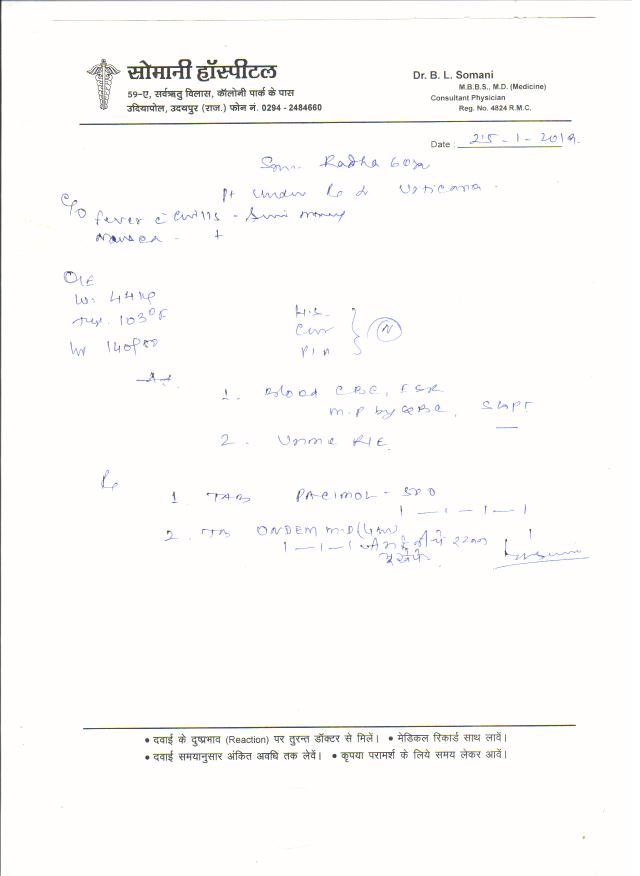 सोमानी हॉस्पीटल
59-ए, सर्वऋतु विलास, कॉलोनी पार्क के पास
उदियापोल, उदयपुर (राज.) फोन नं. 0294 - 2484660
Dr. B. L. Somani
M.B.B.S., M.D. (Medicine)
Consultant Physician
Reg. No. 4824 R.M.C.
Date : 25-1-2019.
Radha
Pt under Urticaria.
C/o fever c chills -
Nausea - +
O/E
Wt: 44 kg
103°F
140/80
H.S.
P/A
N
1. Blood CBC, ESR
M.P by QBC, SGPT
2. Urine R/E
Rx
1 TAB PACIMOL - 
1 - 1 - 1 - 1
2. TAB ONDEM M.D (4
1 - 1 - 1 जीभ के नीचे रखकर
• दवाई के दुष्प्रभाव (Reaction) पर तुरन्त डॉक्टर से मिलें। • मेडिकल रिकार्ड साथ लावें।
• दवाई समयानुसार अंकित अवधि तक लेवें। • कृपया परामर्श के लिये समय लेकर आवें।